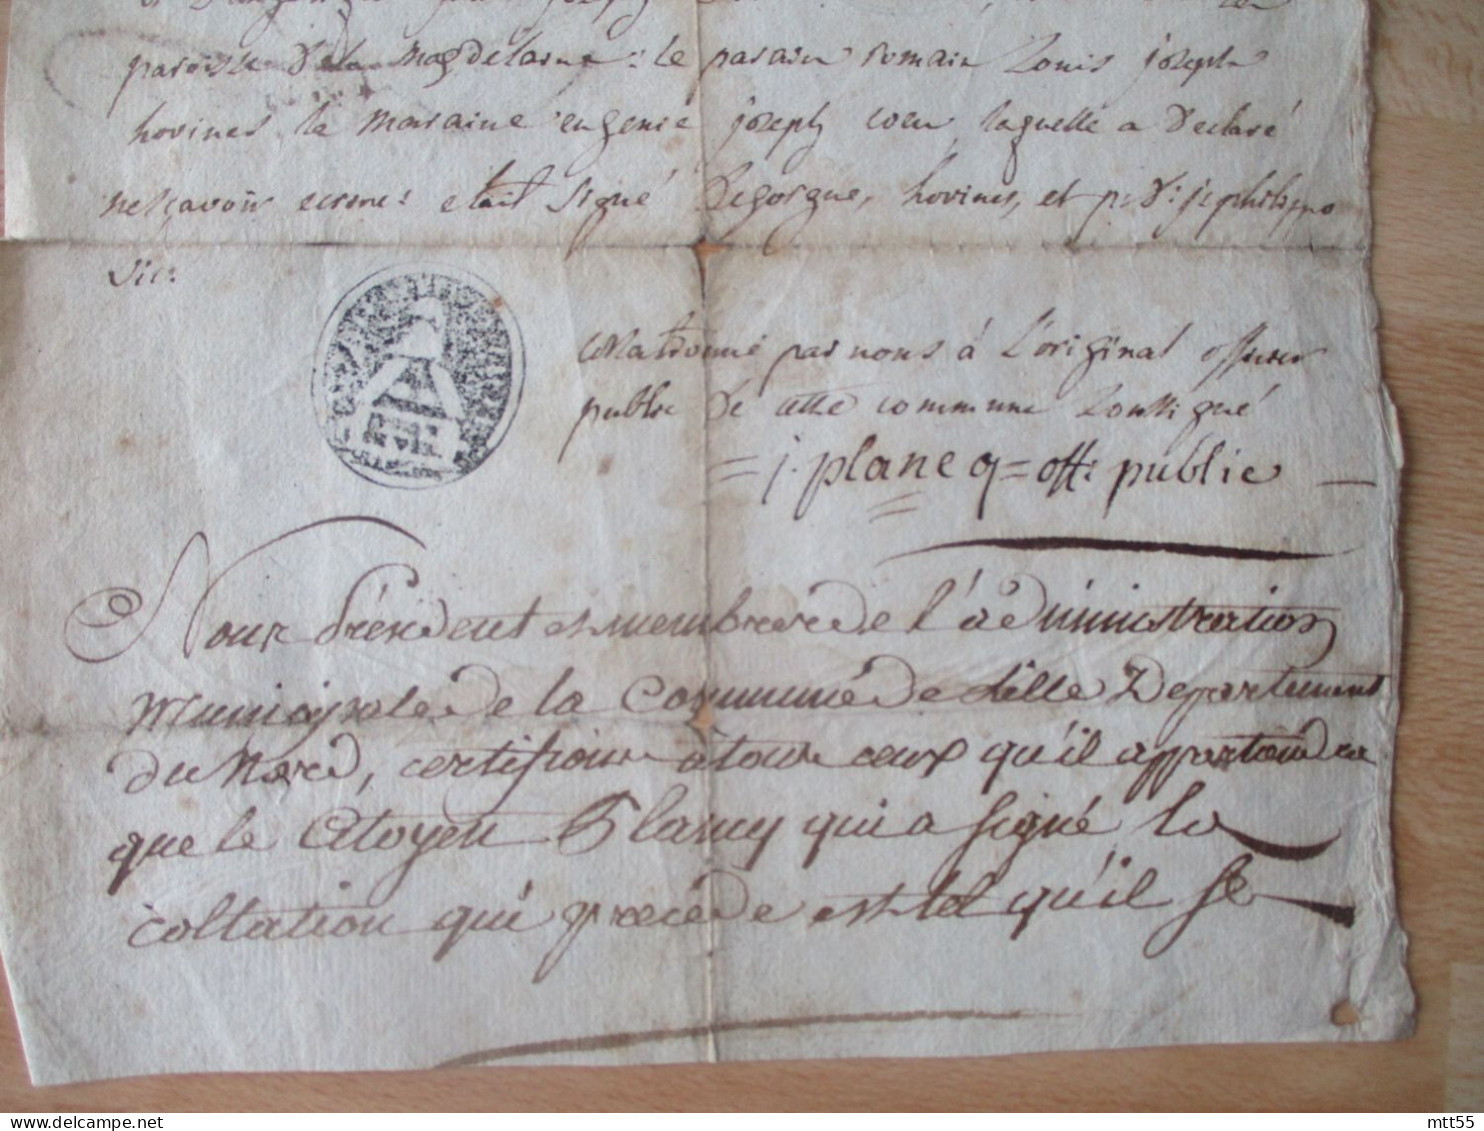 paroisse de la magdelaine : le parain romain Louis joseph
hovines, la maraine eugenie joseph coeu laquelle a declaré
ne sçavoir ecrire : etait signé Degorgue, hovines, et p. d : j. philippo
vic :
collationné par nous à l'original officier
public de cette commune soussigné
= j. plancq = off : public
Nous Président et membres de l'administration
Municipale de la Commune de Lille Departement
du Nord, certifions à tous ceux qu'il appartiendra
que le Citoyen Plancq qui a signé la
collation qui précéde est tel qu'il se
mtt55